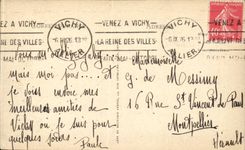 VENEZ A VICHY
LA REINE DES VILLES
VICHY
ALLIER
VENEZ A VICHY
LA REINE DES VILLES
VICHY
mais moi pas... et
je vous envoie mes
meilleures amitiés de
Vichy où je suis pour
quelques jours.
Paule
Mademoiselle
G. de Messimy
16 Rue St Vincent de Paul
Montpellier
Hérault